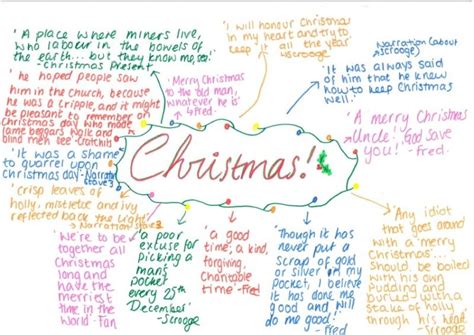 'A place where miners live,
who labour in the bowels of
the earth... but they know me, see!'
- Christmas Present
'he hoped people saw
him in the church, because
he was a cripple, and it might
be pleasant to remember on
Christmas day who made
lame beggars walk and
blind men see - Cratchit
'It was a shame
to quarrel upon
Christmas day - Narration
stave 3
'crisp leaves of
holly, mistletoe and ivy
reflected back the light'
- Narration stave 3
'Merry Christmas
to the old man,
whatever he is'
- Fred
'I will honour Christmas
in my heart and try to
keep it all the year'
- Scrooge
Narration (about
Scrooge)
'it was always said
of him that he knew
how to keep Christmas
well'.
'A merry Christmas
Uncle! God save
you!' - Fred.
Christmas!
'We're to be
together all
Christmas
long and
have the
merriest
time in the
world' - Fan
'a poor
excuse for
picking a
man's
pocket
every 25th
December'
- Scrooge
'a good
time, a kind,
forgiving,
charitable
time' - Fred
'Though it has
never put a
scrap of gold
or silver in my
pocket, I believe
it has done me
good and will
do me good'
- Fred
'Any idiot
that goes
around with
a 'merry
Christmas'...
should be
boiled with
his own
pudding and
buried with a
stake of holly
through his heart
- Scrooge